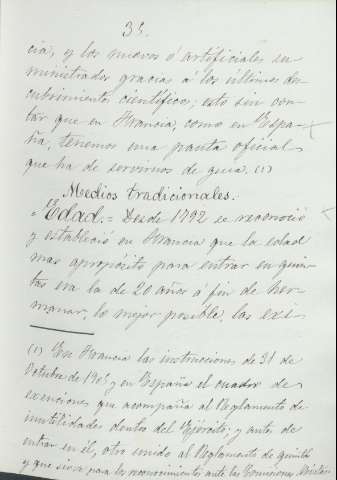 35.
cia, y los nuevos ó artificiales su-
ministrados gracias á los últimos des-
cubrimientos científicos; esto sin con-
tar que en Francia, como en Espa-
ña, tenemos una pauta oficial
que ha de servirnos de guia. (1)
Medios tradicionales.
Edad. = Desde 1792 se reconoció
y estableció en Francia que la edad
mas apropósito para entrar en quin-
tas era la de 20 años á fin de her-
manar, lo mejor posible, las exi-
(1) En Francia las instrucciones de 31 de
Octubre de 1905 y en España el cuadro de
exenciones que acompaña al Reglamento de
inutilidades dentro del Ejército; y antes de
entrar en él, otro unido al Reglamento de
y que sirve para los reconocimientos ante las Comisiones